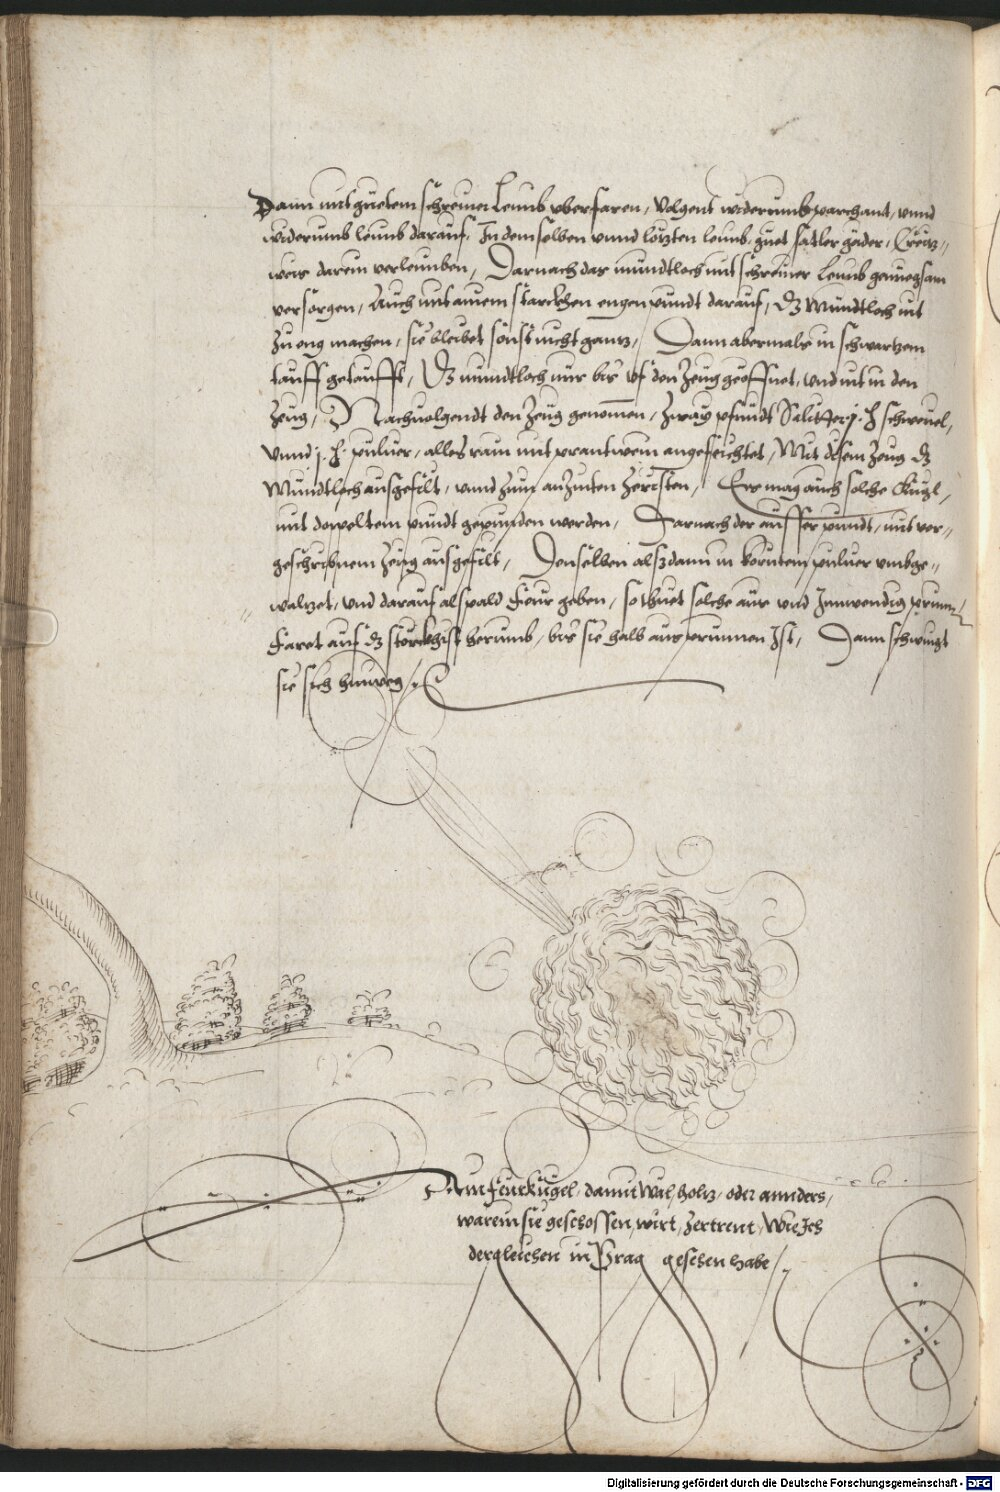 Dann mit guetem schreiner Leimb vberfaren, Volgent widerumb parchant, vnnd
widerumb leimb darauf, In demselben vnnd lötzten leimb, guet satler gäder, Creüz„
weis darein verleimben, Darnach das mundtloch mit schreiner Leimb genuegsam
versorgen, Auch mit ainem starckhen engen pundt darauf, dz Mundtloch nit
zu eng machen, sie bleibet sonst nicht gannz, Dann abermals in schwartzem
tauff getaufft, Dz mundtloch nur bis vf den Zeug geöffnet, vnd nit in den
Zeug, Nachuolgendt den Zeug genomen, Zway pfundt Saliter j. ℔ schwebel,
vnnd j. ℔. puluer, alles rain mit prantwein angefeichtet, Mit disem Zeug dz
Mundtloch ausgefült, vnnd zum anzünten Zerissen, Ess mag auch solche Kugl,
mit dopeltem pundt gepunden werden, Darnach der ausser pundt, mit vor„
geschribnem Zeug ausgefült, Denselben alsdann in körntem puluer vmbge„
walzet, vnd darauf alspald Feur geben, so thuet solche aus vnd Innwendig prinnen,
Faret auf dz sterckhist herumb, bis sie halb aus prunnen Ist, Dann schwingt
sie sich hinweg
Ain Feurkugel, damit Wäl, holtz, oder annders,
warein sie geschossen, wirt, Zertrent, Wie Ich
dergleichen in Prag gesehen habe
Digitalisierung gefördert durch die Deutsche Forschungsgemeinschaft - DFG